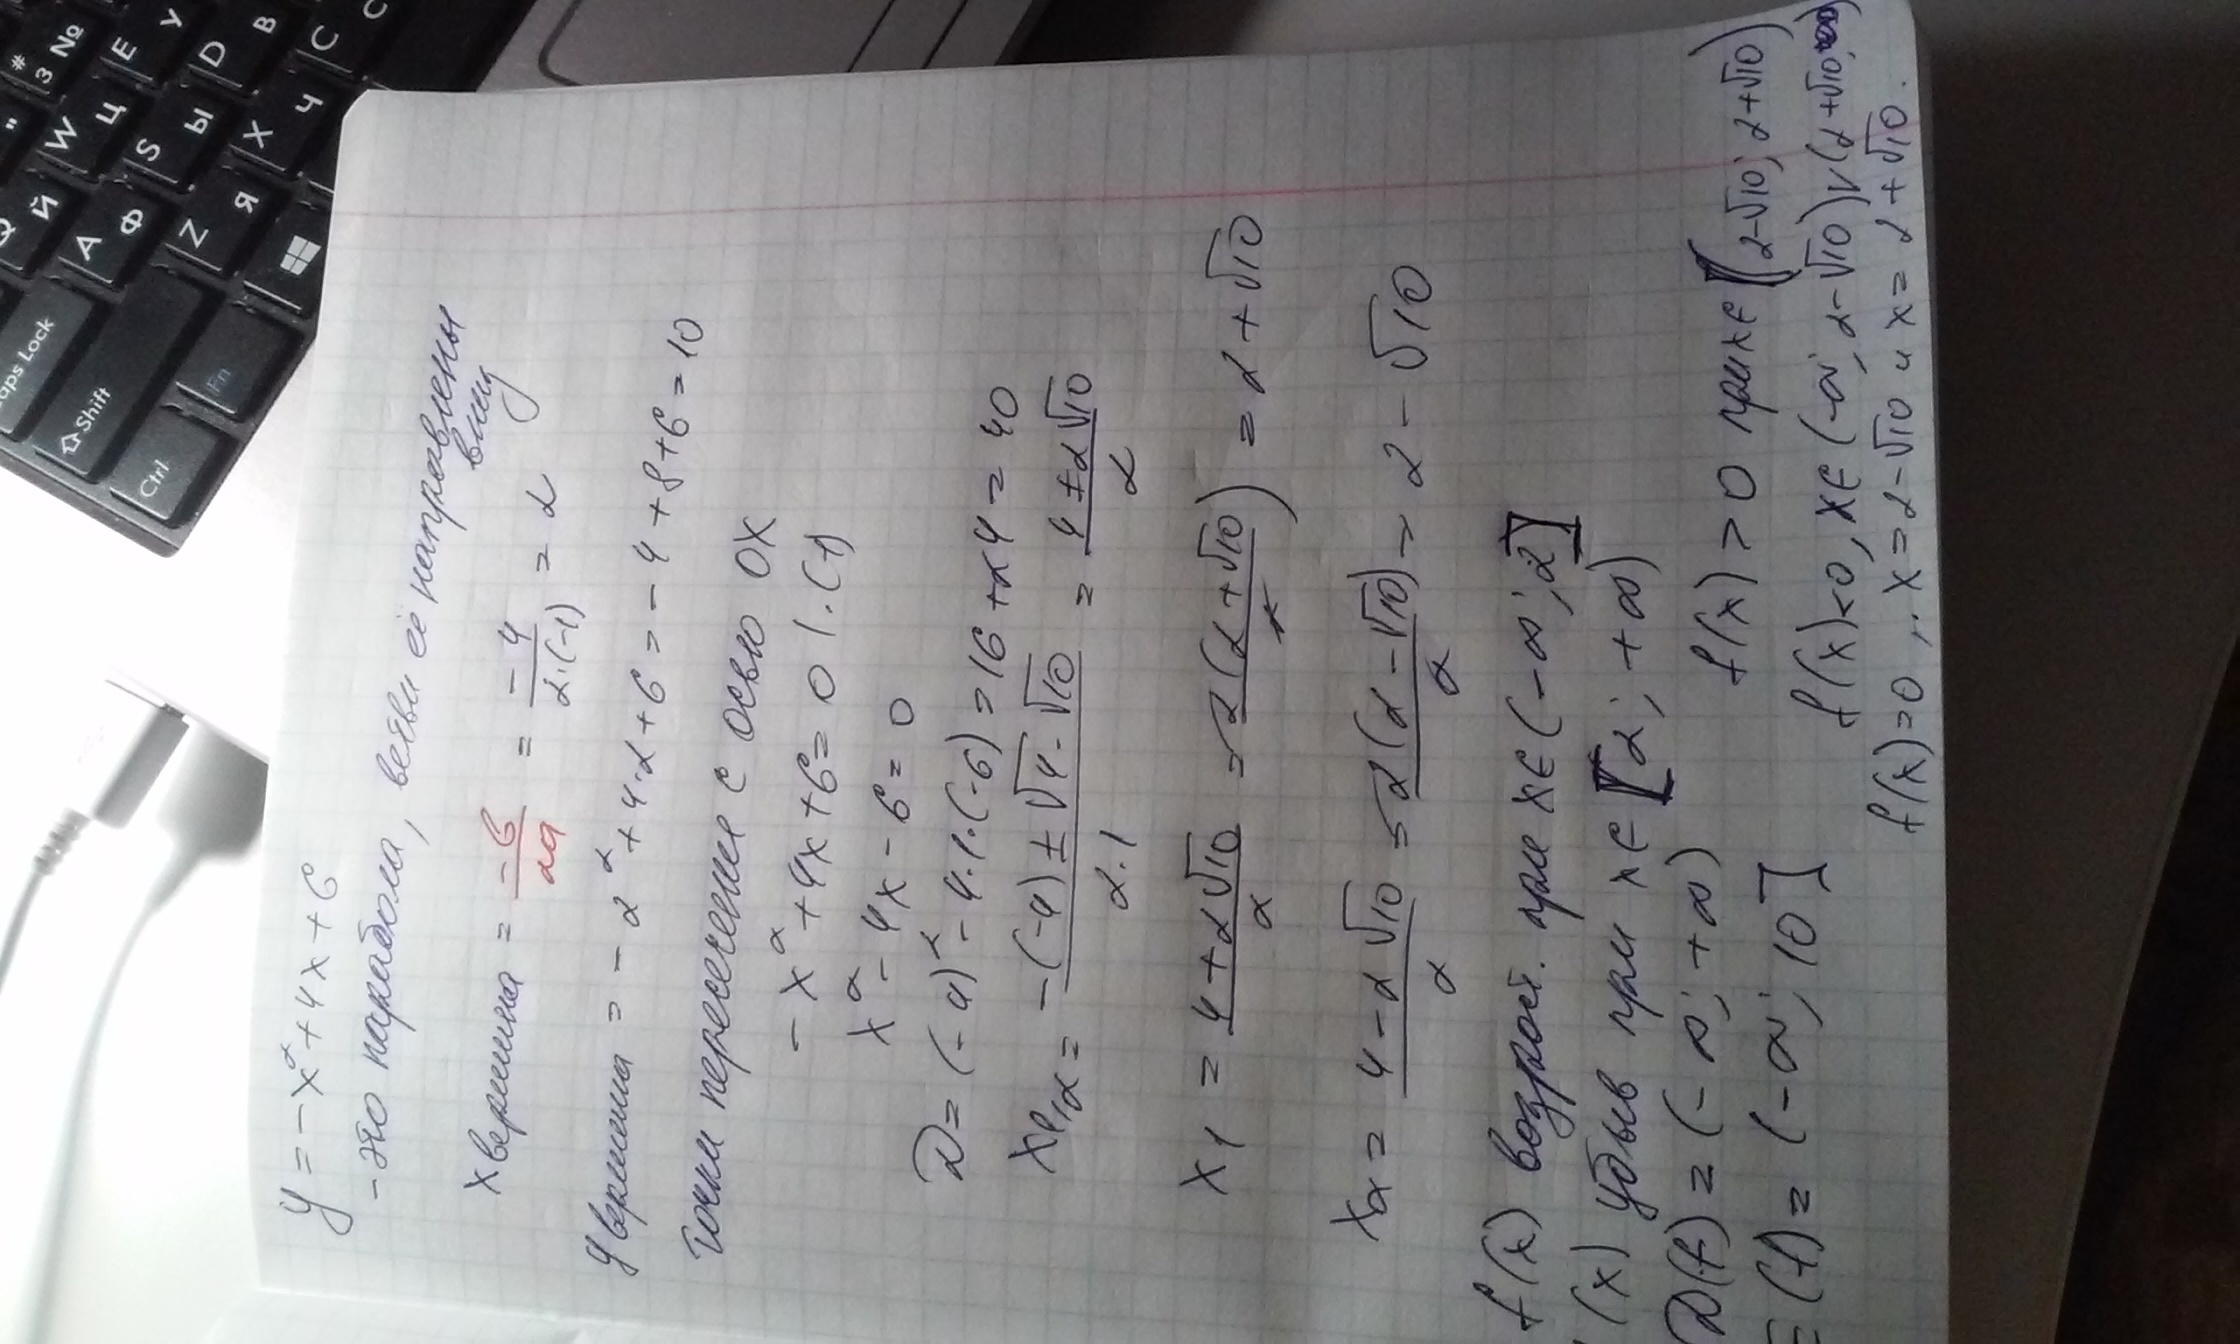 y = -x² + 4x + 6
- это парабола, ветви её направлены
вниз
x вершина = -b/2a = -4/2·(-1) = 2
y вершина = -2² + 4·2 + 6 = -4 + 8 + 6 = 10
Точки пересечения с осью OX
-x² + 4x + 6 = 0 | ·(-1)
x² - 4x - 6 = 0
D = (-4)² - 4·1·(-6) = 16 + 24 = 40
x1,2 = -(-4) ± √4·√10 / 2·1 = 4 ± 2√10 / 2
x1 = 4 + 2√10 / 2 = 2(2 + √10) / 2 = 2 + √10
x2 = 4 - 2√10 / 2 = 2(2 - √10) / 2 = 2 - √10
f(x) возраст. при x ∈ (-∞; 2]
(x) убыв при x ∈ [2; +∞)
D(f) = (-∞; +∞)
(f) = (-∞; 10]
f(x) > 0 при x ∈ (2-√10; 2+√10)
f(x) < 0, x ∈ (-∞; 2-√10) ∨ (2+√10; +∞)
f(x) = 0, x = 2-√10 и x = 2+√10.
# 3 №
"
W Ц
E У
Q Й
A Ф
S Ы
D В
Z Я
X Ч
C С
aps Lock
Shift
Ctrl
Fn